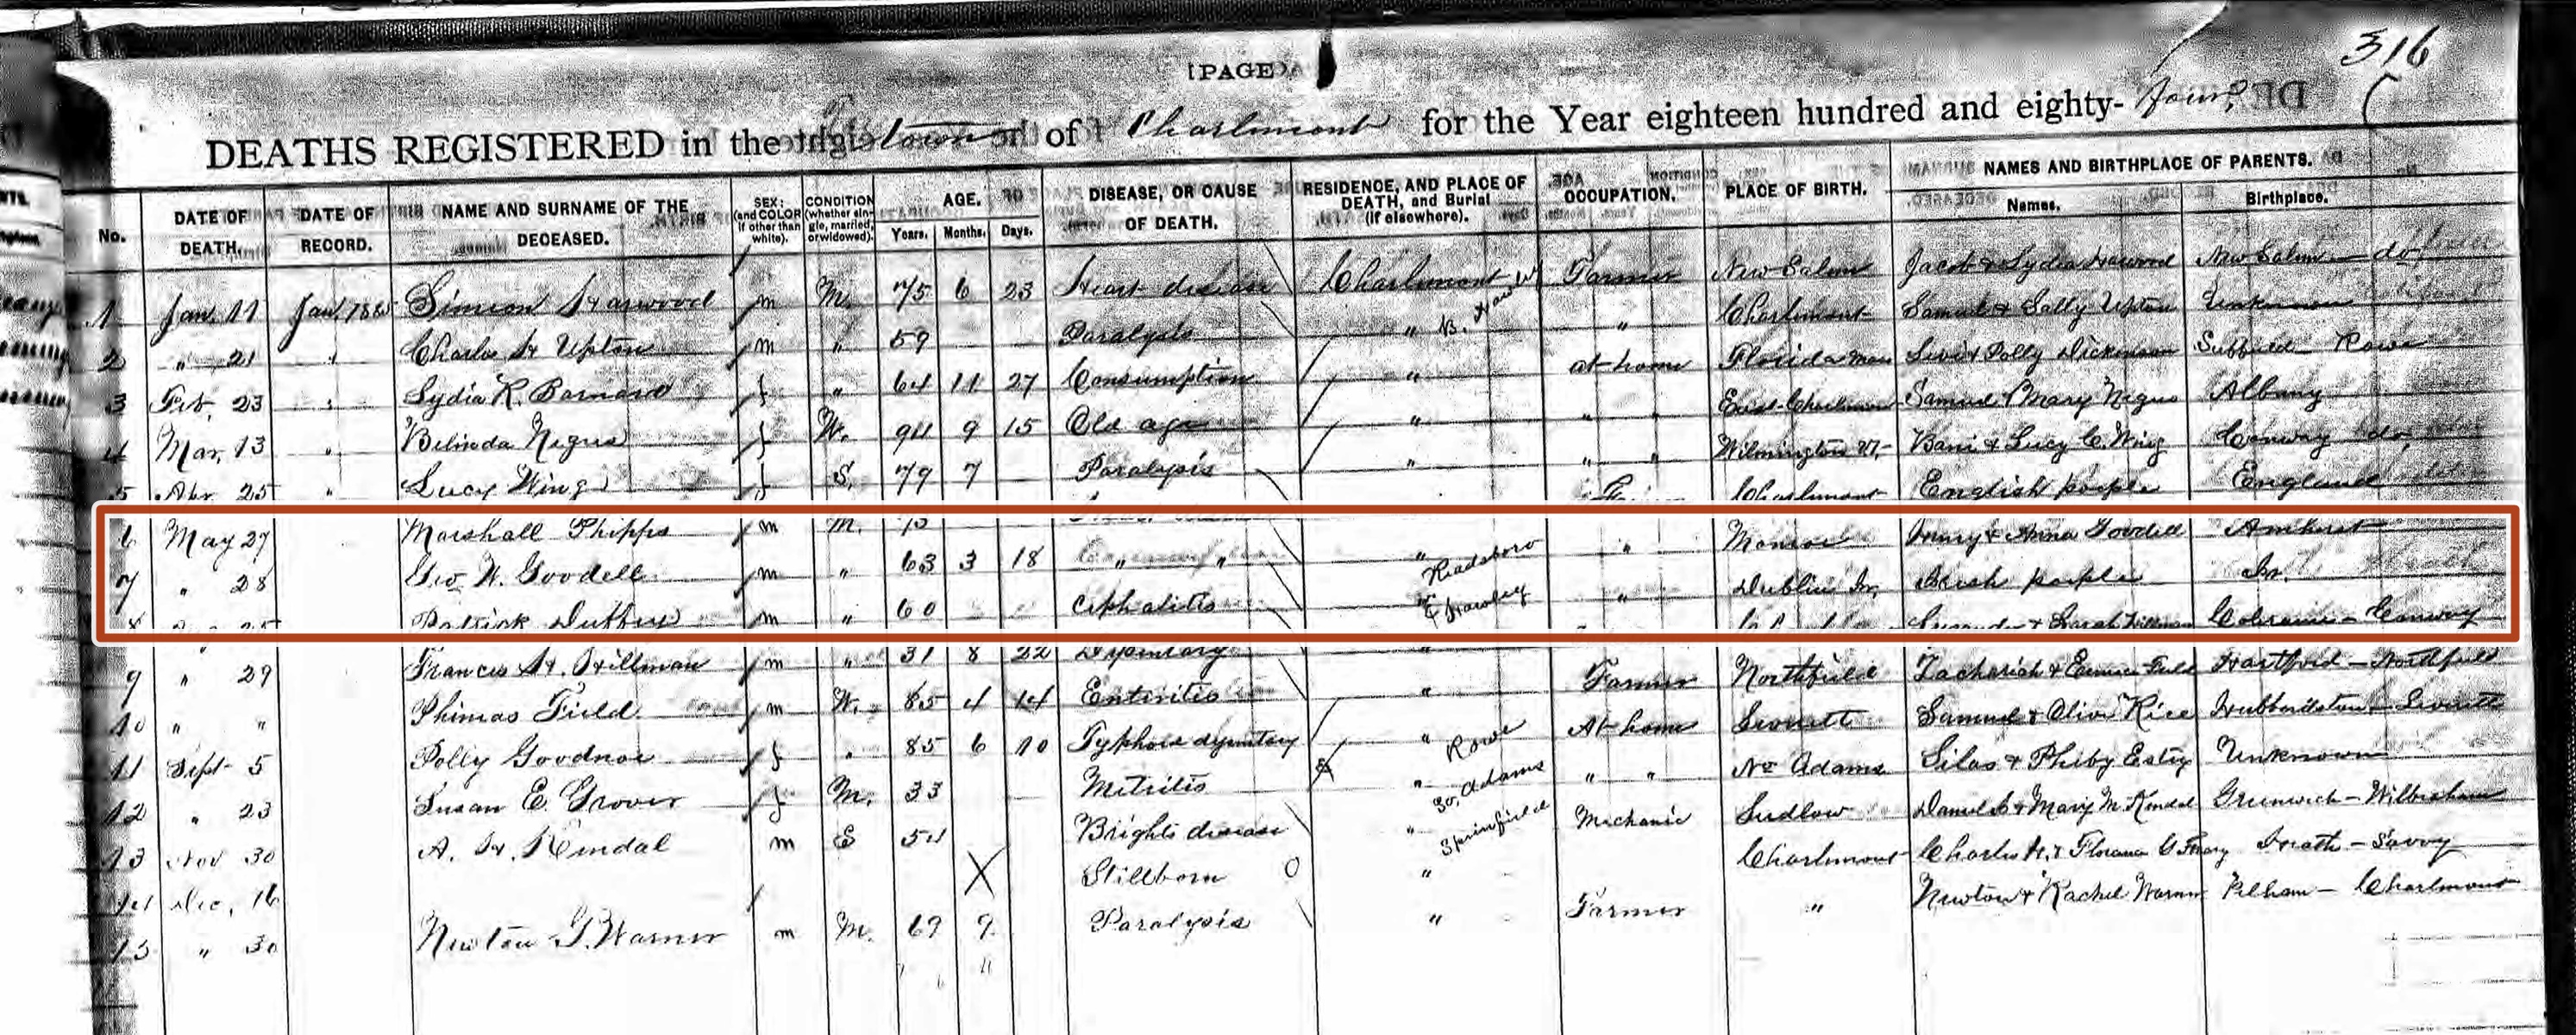 316
[PAGE]
DEATHS REGISTERED in the town of Charlemont for the Year eighteen hundred and eighty-four
NAMES AND BIRTHPLACE OF PARENTS.
No. DATE OF DEATH. DATE OF RECORD. NAME AND SURNAME OF THE DECEASED. SEX; (and COLOR if other than white). CONDITION (whether single, married, or widowed). AGE. Years. Months. Days. DISEASE, OR CAUSE OF DEATH. RESIDENCE, AND PLACE OF DEATH, and Burial (if elsewhere). OCCUPATION. PLACE OF BIRTH. Names. Birthplace.
1 Jan. 11 Jan. 1885 Simeon Harwood m M. 75 6 23 Heart disease Charlemont Farmer New Salem Jacob & Lydia Harwood New Salem - do
2 " 21 " Charles H Upton m " 59 Paralysis " " Charlemont Samuel & Sally Upton Unknown
3 Feb. 23 " Lydia R. Barnard f " 64 11 27 Consumption " at home Florida Mass Levi & Polly Dickinson Rowe
4 Mar. 13 " Belinda Negus f W. 94 9 15 Old age " " " East Charlemont Samuel & Mary Negus Albany
5 Apr. 25 " Lucy Wing f S. 79 7 Paralysis " " " Wilmington Vt. Bani & Lucy C. Wing Conway do
Charlemont English people England
6 May 27 Marshall Phipps m M. 73
7 " 28 Geo W. Goodell m " 63 3 18 " " " Readsboro " Monroe Henry & Anna Goodell Amherst
8 25 Patrick m " 60 " Hawley " Dublin Ir. Irish people Ir.
Lysander & Sarah Hillman Coleraine - Conway
9 " 29 Francis H. Hillman m " 31 8 22 Dysentery "
10 " " Phineas Field m W. 85 4 14 Enteritis " Farmer Northfield Zachariah & Field Hartford - Northfield
11 Sept 5 Polly Goodnow f " 85 6 10 Typhoid dysentery " Rowe At home Leverett Samuel & Olive Rice Hubbardston - Leverett
12 " 23 Susan E. Grover f M. 33 Metritis " So. Adams " " No Adams Silas & Phiby Estey Unknown
13 Nov 30 A. H. Kendal m 54 Brights disease " Springfield Mechanic Ludlow Daniel & Mary M. Kendal Greenwich - Wilbraham
14 Dec. 16 X Stillborn O " Charlemont Heath - Savoy
15 " 30 Newton G. Warner m M. 69 9 Paralysis " Farmer " Newton & Rachel Warner Pelham - Charlemont